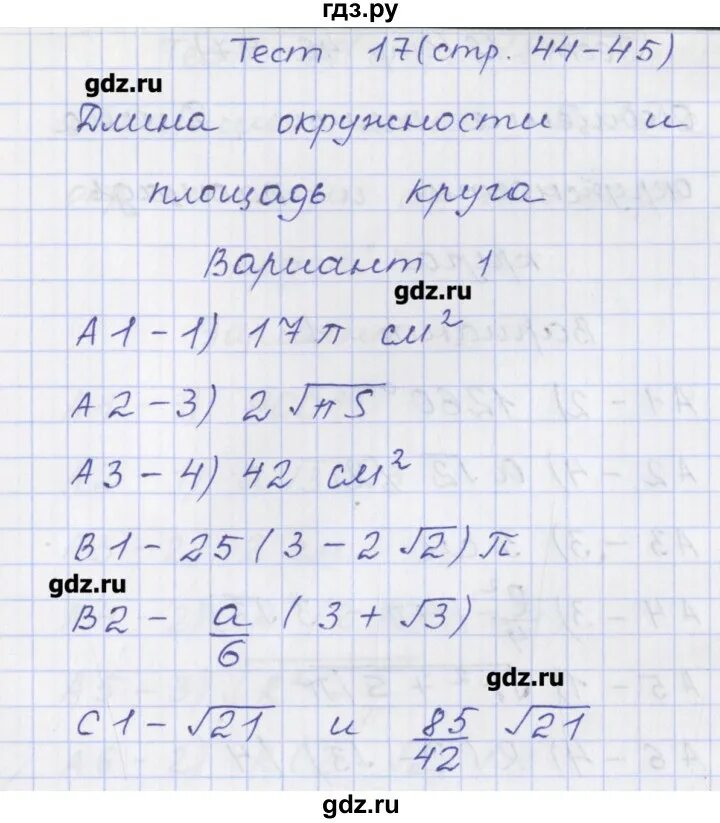 гдз.ру
Тест 17(стр. 44-45)
gdz.ru
Длина окружности и
площадь круга
Вариант 1
gdz.ru
А1-1) 17π см²
А2-3) 2√πS
А3-4) 42 см²
В1-25(3-2√2)π
gdz.ru
В2- a/6 (3+√3)
gdz.ru
С1-√21 и 85/42 √21
gdz.ru